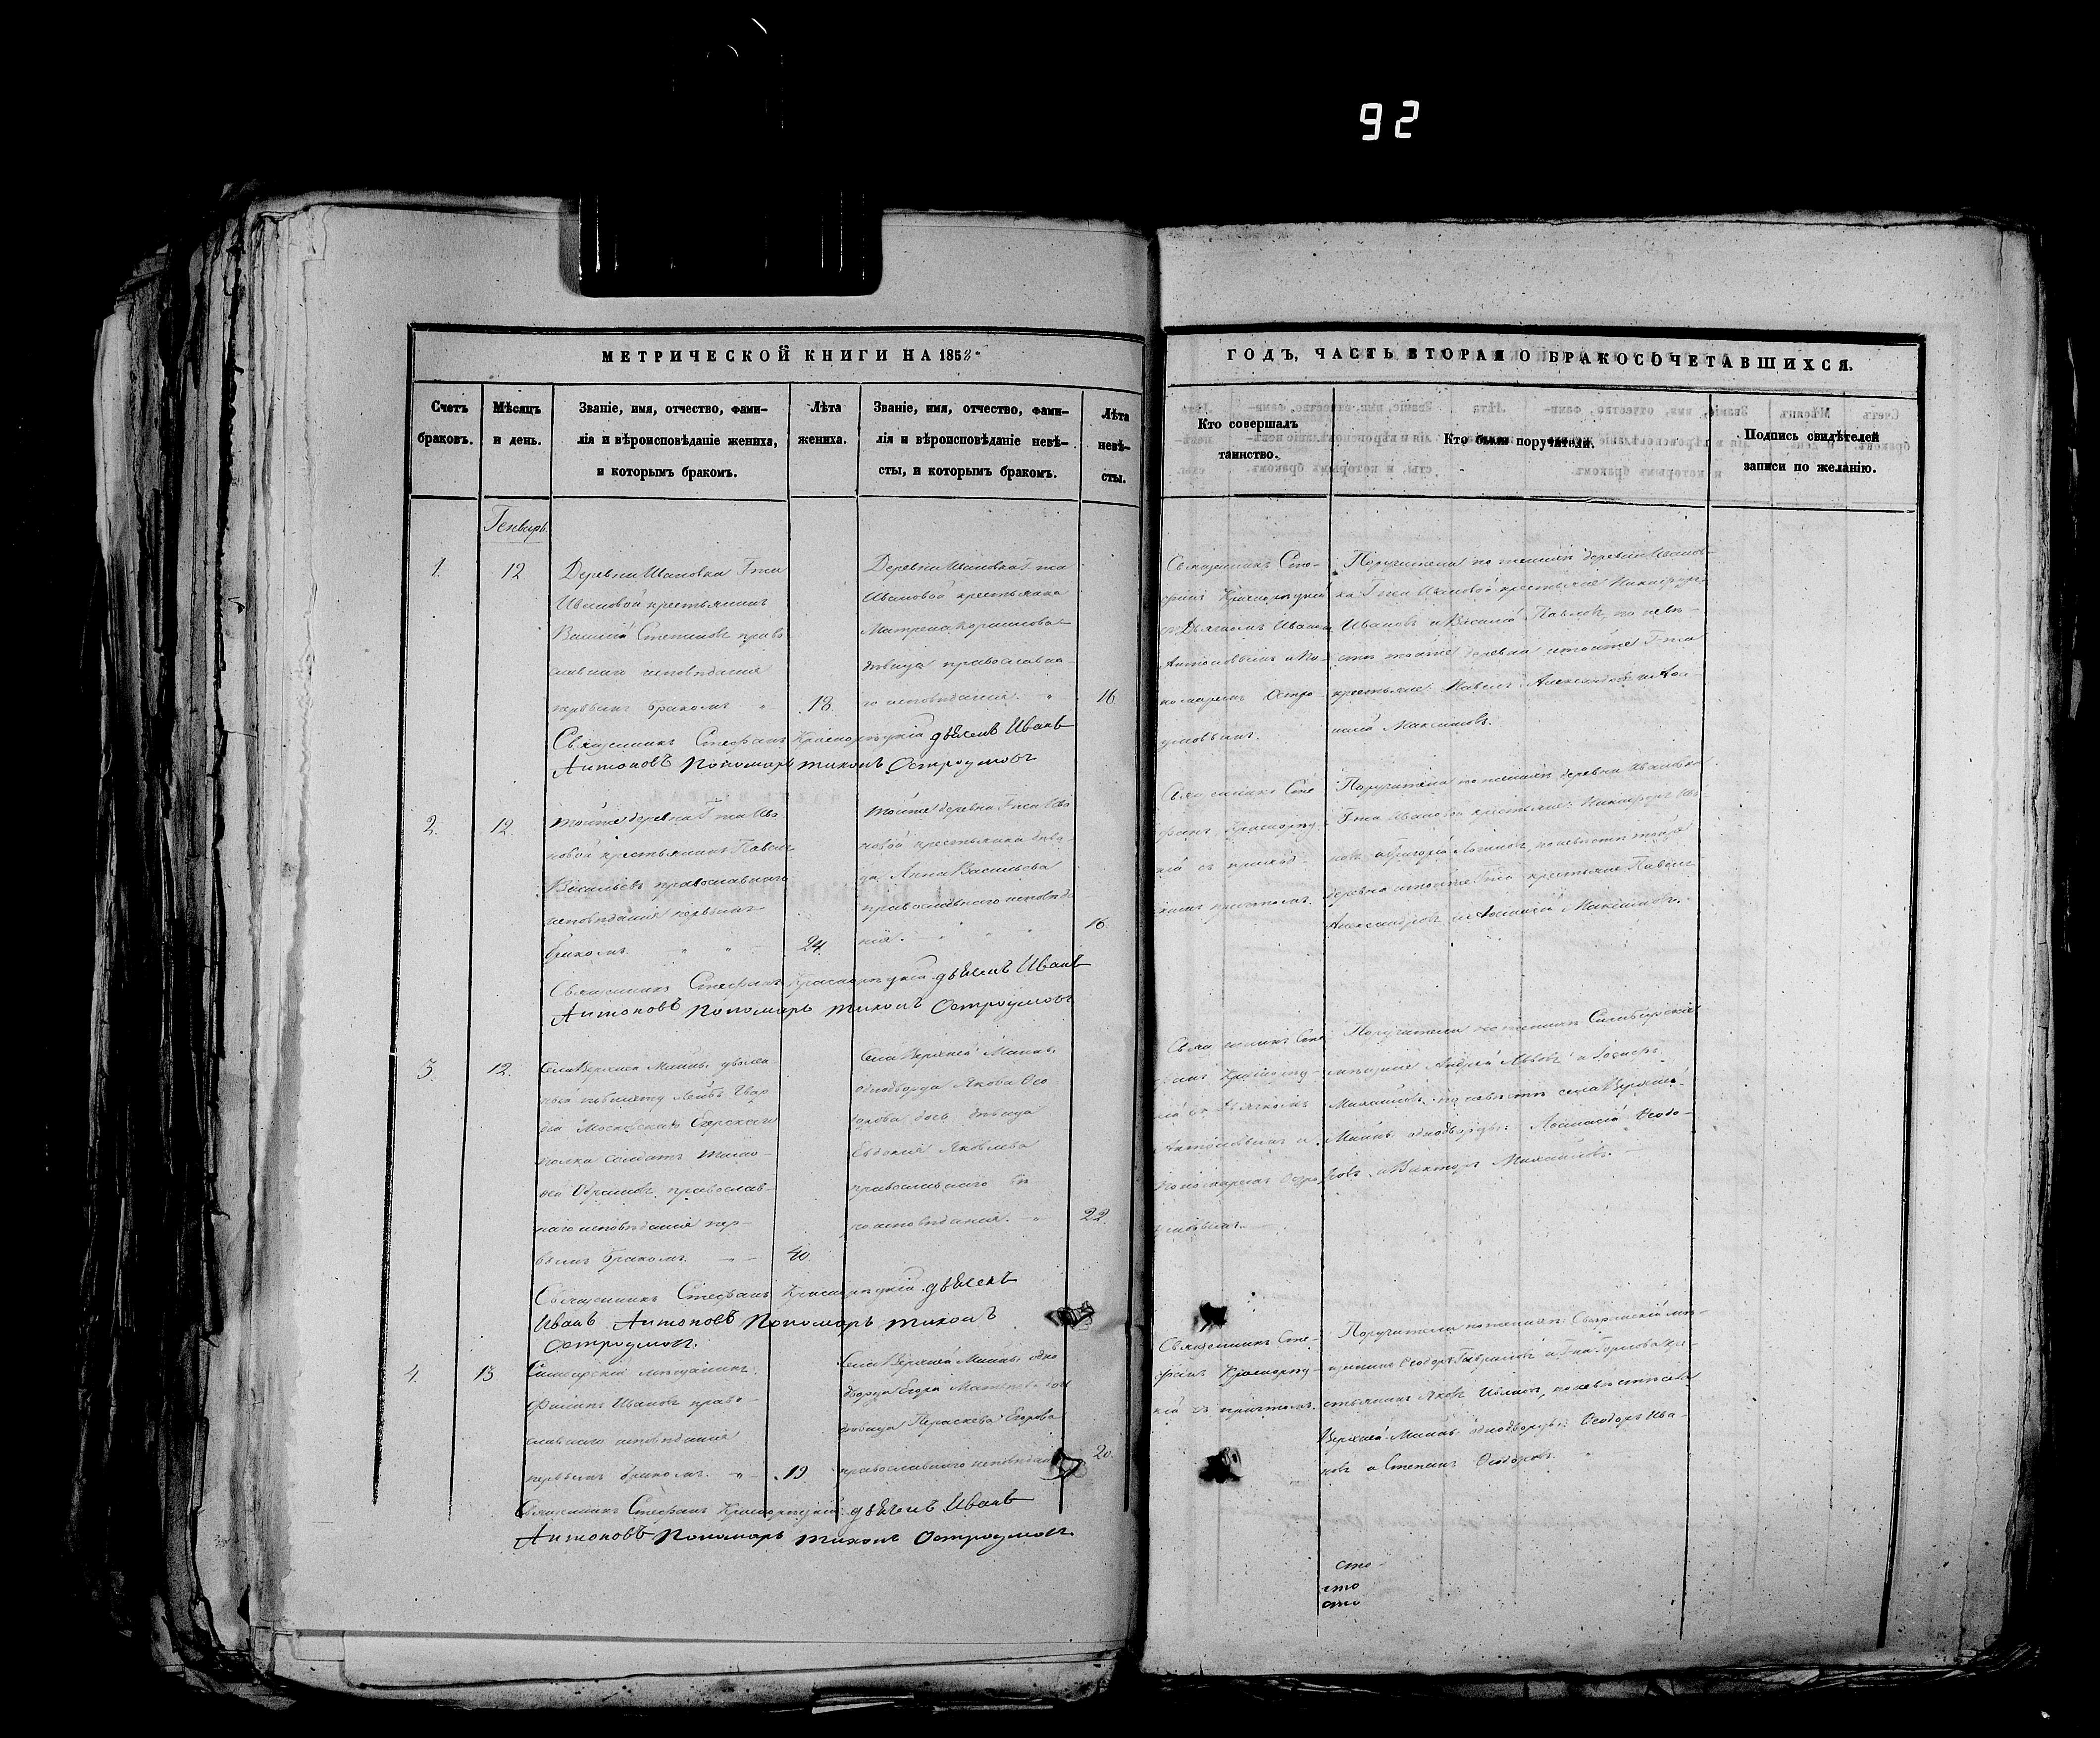 92
МЕТРИЧЕСКОЙ КНИГИ НА 1853
ГОДЪ, ЧАСТЬ ВТОРАЯ О БРАКОСОЧЕТАВШИХСЯ.
Счетъ
браковъ.
Мѣсяцъ
и день.
Званіе, имя, отчество, фами-
лія и вѣроисповѣданіе жениха,
и которымъ бракомъ.
Лѣта
жениха.
Званіе, имя, отчество, фами-
лія и вѣроисповѣданіе невѣ-
сты, и которымъ бракомъ.
Лѣта
невѣ-
сты.
Кто совершалъ
таинство.
Кто были поручители.
Подпись свидѣтелей
записи по желанію.
Генварь
1.
12
Деревни Ивановки Гжи
Ивановой крестьянинъ
Василій Степановъ право
славнаго исповѣданія
первымъ бракомъ
18.
Деревни Ивановки Гжи
Ивановой крестьянка
Матрена
дѣвица православна
го исповѣданія
16
Священникъ Сте-
фанъ
Дьячкомъ Иваномъ
Антоновымъ и По-
номаремъ Остро-
умовымъ.
Поручители по женихѣ деревни Иванов
ки Гжи Ивановой крестьяне Никифоръ
Ивановъ и Василій Павловъ, по невѣ-
стѣ тойже деревни и тойже Гжи
крестьяне Павелъ Александровъ и Аѳа
насій Максимовъ.
Священникъ Стефанъ дьячекъ Иванъ
Антоновъ Пономарь Тихонъ Остроумовъ
2.
12
Тойже деревни Гжи Ива
новой крестьянинъ Павелъ
Васильевъ православнаго
исповѣданія первымъ
бракомъ
24.
Тойже деревни Гжи Ива
новой крестьянка дѣви
ца Анна Васильева
православнаго исповѣда
нія.
16.
Священникъ Сте
фанъ
кій съ
причтомъ.
Поручители по женихѣ деревни Ивановки
Гжи Ивановой крестьяне: Никифоръ Ива
новъ и Григорій по невѣстѣ тойже
деревни и тойже Гжи крестьяне Павелъ
Александровъ и Аѳанасій Максимовъ.
Священникъ Стефанъ дьячекъ Иванъ
Антоновъ Пономарь Тихонъ Остроумовъ
3.
12.
Села Верхней Маины
Лейбъ Гвар
діи Московскаго
полка солдатъ
православ-
наго исповѣданія пер-
вымъ бракомъ
40.
Села Верхней Маины
однодворца Якова Ѳео
дорова дочь дѣвица
Евдокія Яковлева
православнаго
исповѣданія.
22.
Священникъ Сте
фанъ
кій съ Дьячкомъ
Антоновымъ и
Пономаремъ Остро
умовымъ.
Поручители по женихѣ Симбирскіе
мѣщане Андрей Львовъ и
Михайловъ, по невѣстѣ села Верхней
Маины однодворцы: Аѳанасій Ѳеодо-
ровъ и Викторъ Михайловъ.
Священникъ Стефанъ дьячекъ
Иванъ Антоновъ Пономарь Тихонъ
Остроумовъ.
4.
13
Симбирскій мѣщанинъ
Филипъ Ивановъ право-
славнаго исповѣданія
первымъ бракомъ.
19.
Села Верхней Маины одно
дворца Егора дочь
дѣвица Параскева Егорова
православнаго исповѣданія
20.
Священникъ Сте-
фанъ
кій съ причтомъ.
Поручители по женихѣ: Сызранскій мѣ-
щанинъ Ѳеодоръ Гавриловъ и Гжи кре-
стьянинъ Яковъ Ивановъ, по невѣстѣ села
Верхней Маины однодворцы: Ѳеодоръ Ива-
новъ и Степанъ Ѳеодоровъ.
Священникъ Стефанъ дьячекъ Иванъ
Антоновъ Пономарь Тихонъ Остроумовъ